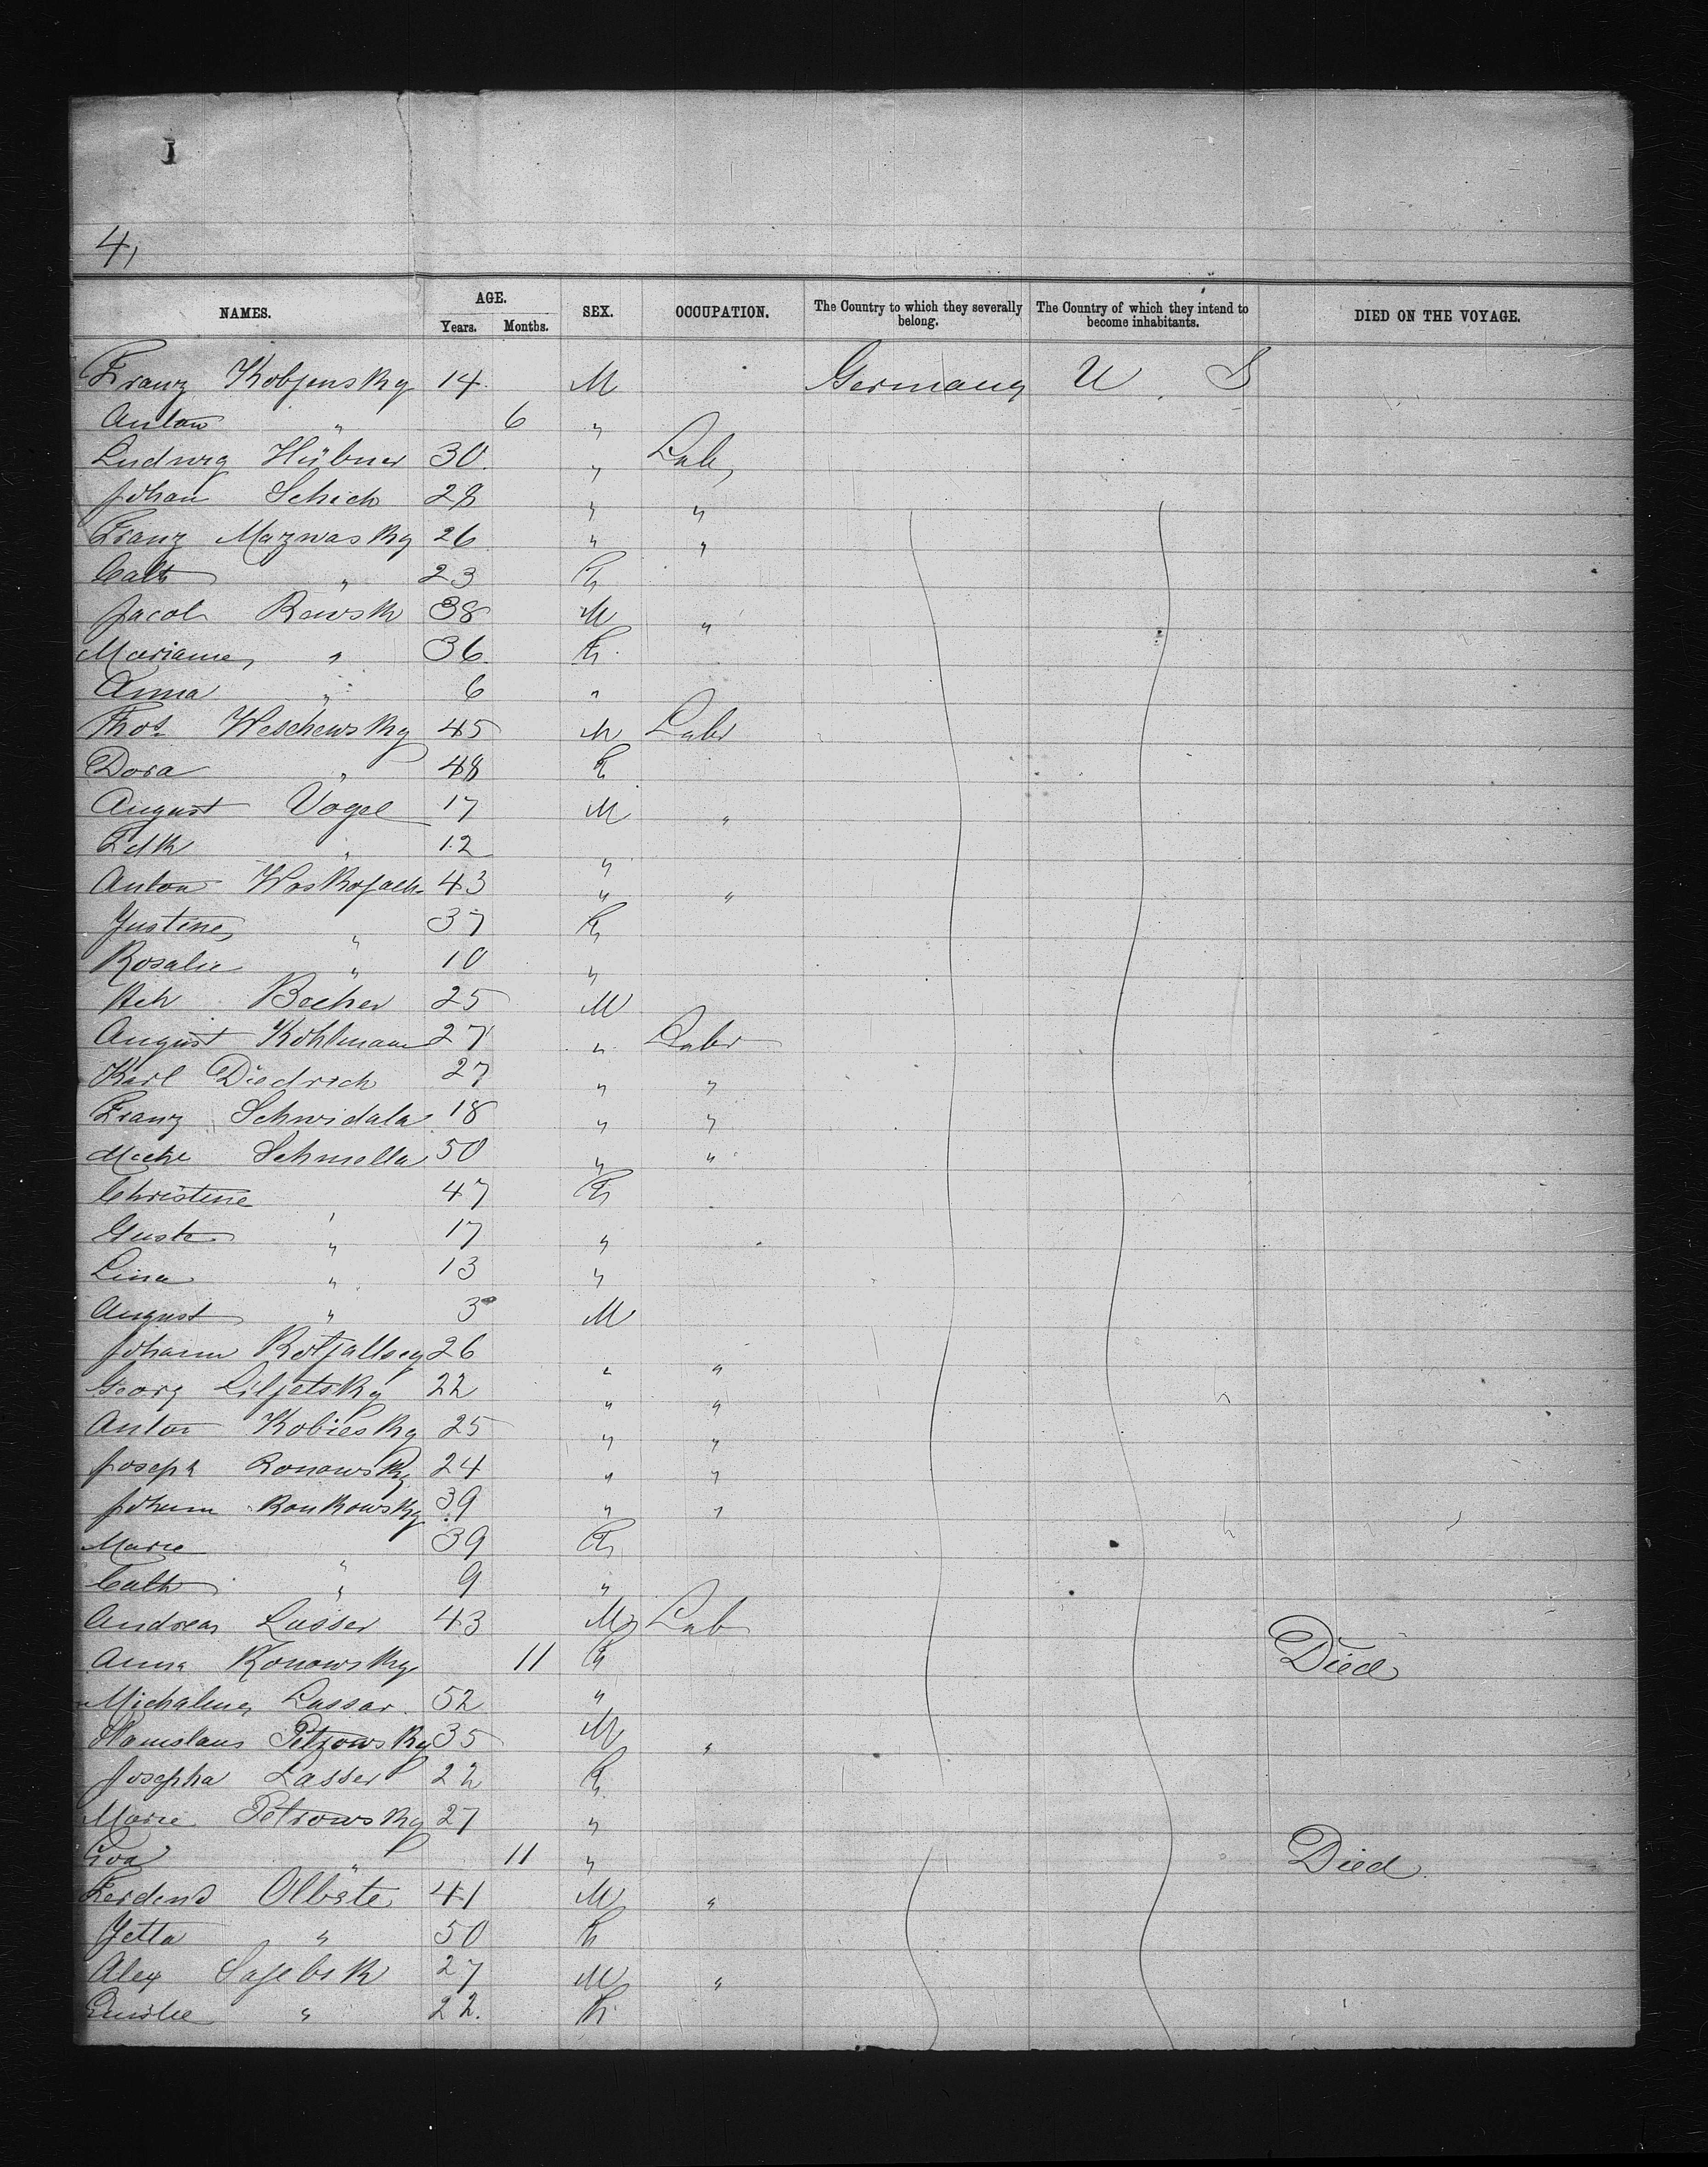 4,
NAMES. AGE. SEX. OCCUPATION. The Country to which they severally belong. The Country of which they intend to become inhabitants. DIED ON THE VOYAGE.
Years. Months.
Franz Kobjensky 14 M Germany U S
Anton " 6 "
Ludwig Hübner 30. " Lab,
Johan Schick 28 " "
Franz Maznasky 26 " "
Cath " 23 F
Jacob Rewsk 38 M "
Mariane " 36 F
Anna " 6 "
Thos Weschewsky 45 M Labr
Dora " 48 F
August Vogel 17 M "
" 12 "
Anton 43 " "
Justine " 37 F
Rosalie " 10 "
Becher 25 M
August Kohlmann 27 " Labr
Karl Diedrich 27 " "
Franz Schwidala 18 " "
Schmella 50 " "
Christine " 47 F
Guste " 17 "
Lina " 13 "
August " 3 M
Johann 26 " "
Georg Liljetsky 22 " "
Anton Kobiesky 25 " "
Joseph Ronowsky 24 " "
Johann Konkowsky 39 " "
Marie " 39 F
Cath " 9 "
Andreas Lasser 43 M Lab
Anna Konowsky 11 F Died
Michaline Lassar 52 "
Stanislaus Petzowsky 35 M "
Josepha Lasser 22 F
Marie Petrowsky 27 "
Eva " 11 " Died
Ferdend Olbste 41 M "
Jetta " 50 F
Alex Sajebik 27 M "
Emilie " 22. F